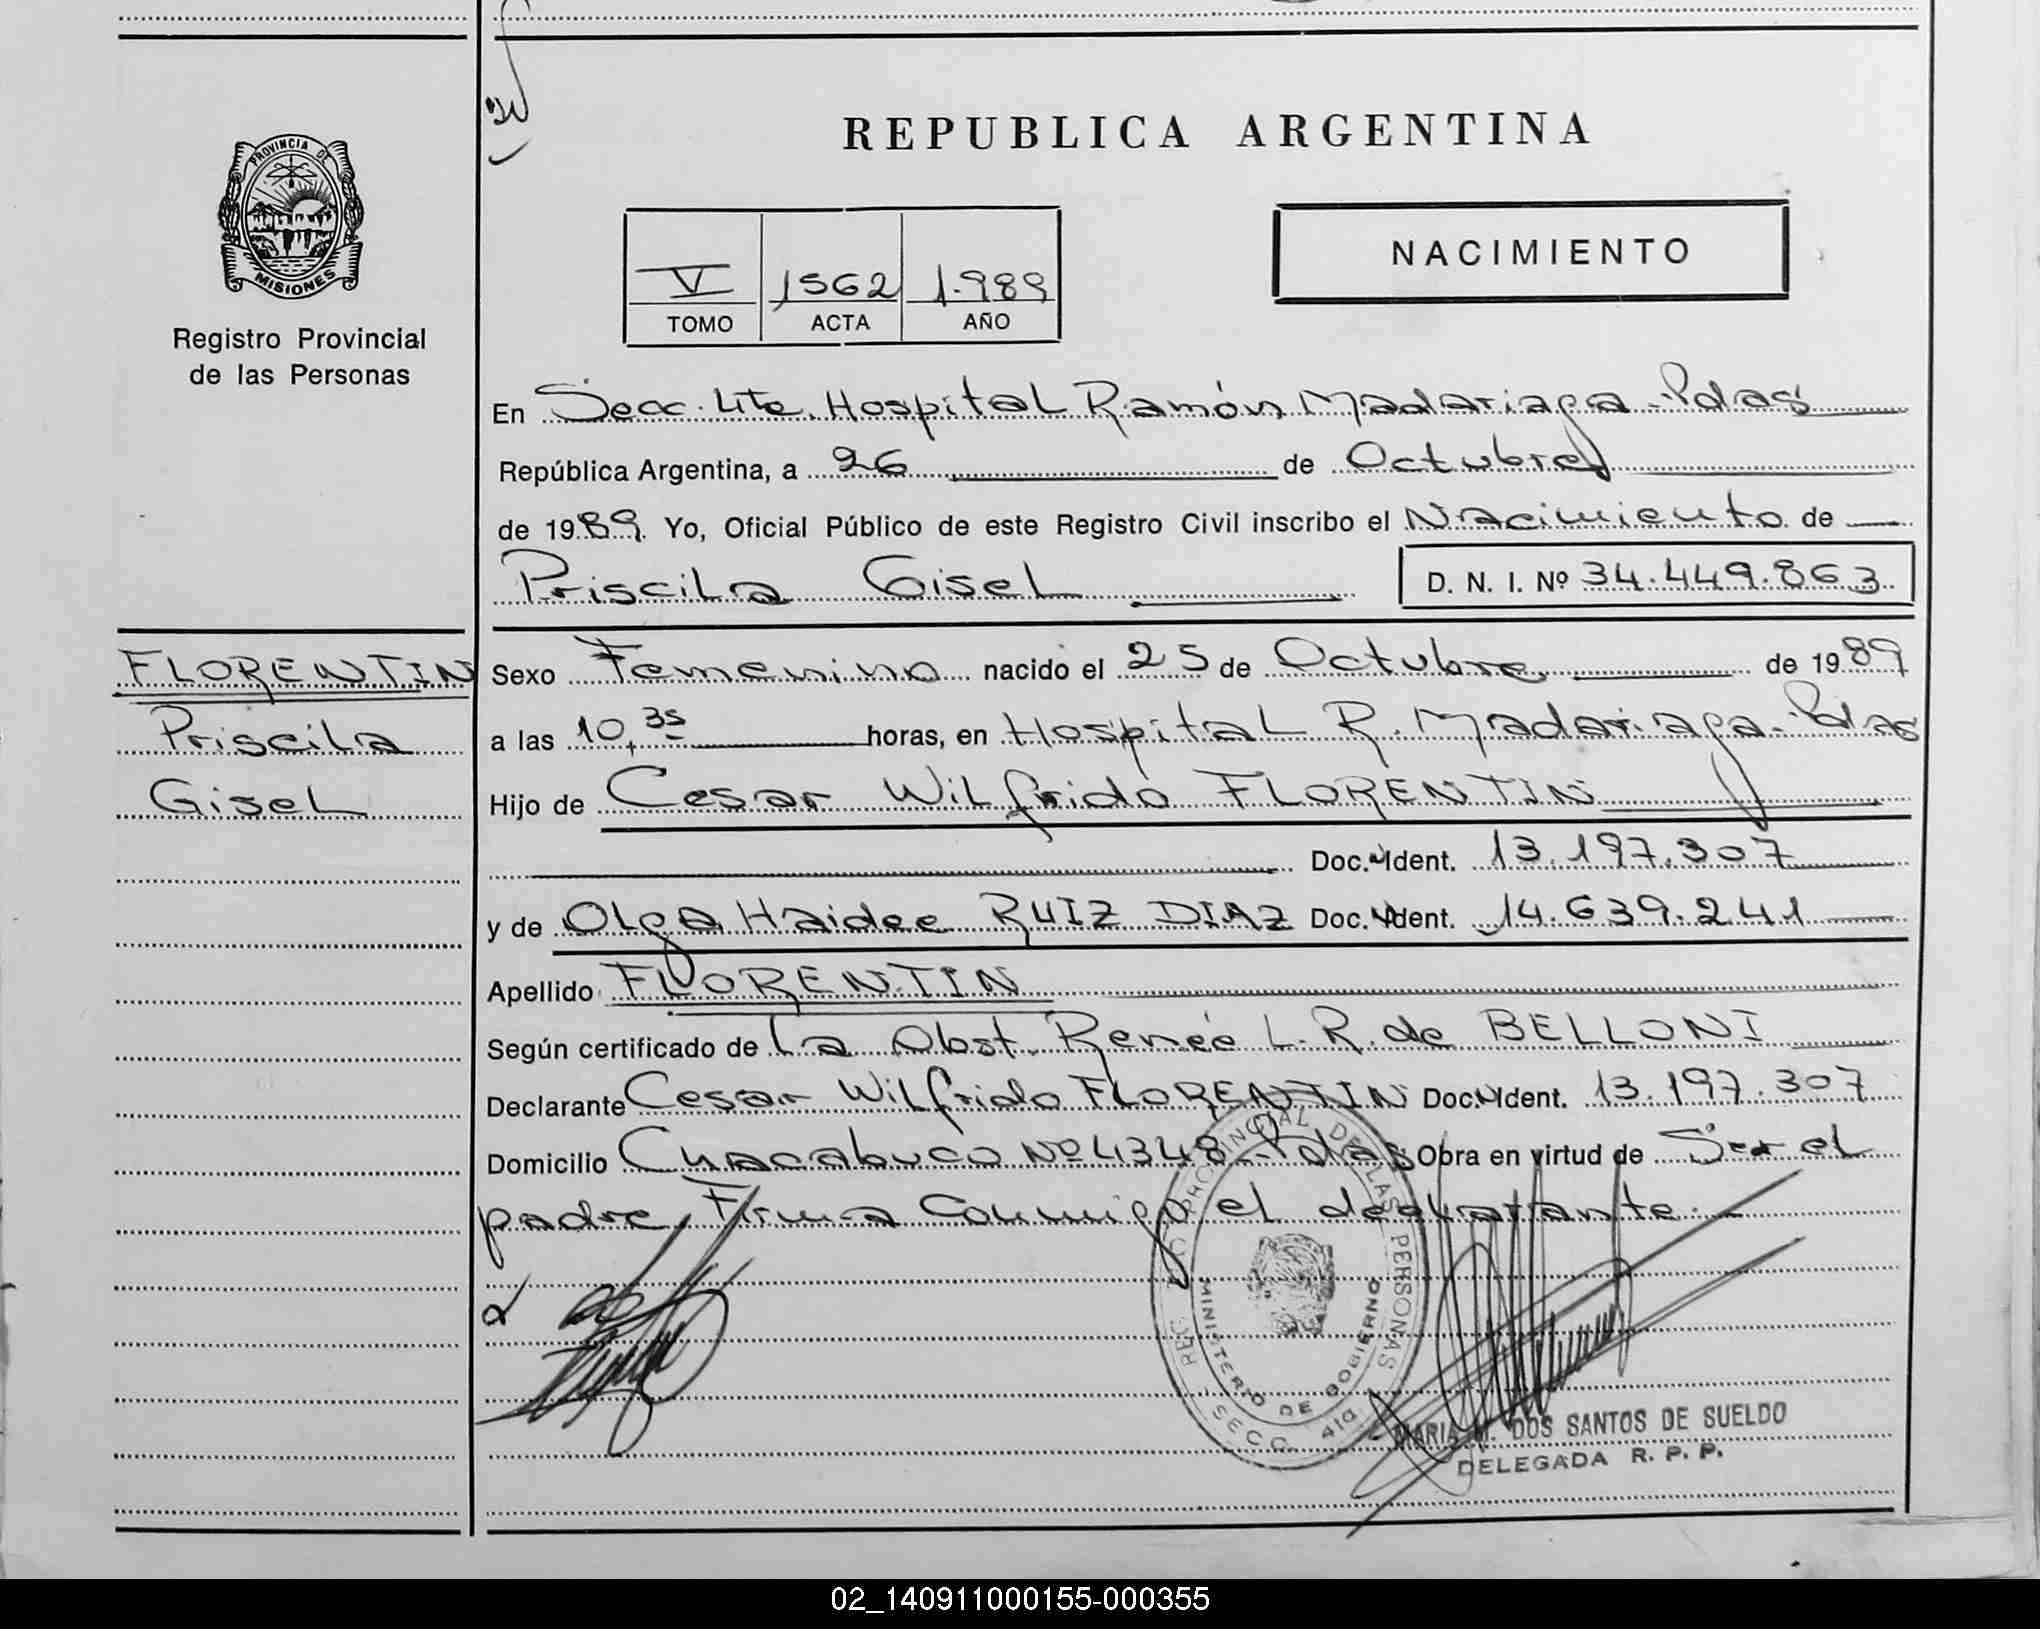 REPUBLICA ARGENTINA
PROVINCIA DE
MISIONES
Registro Provincial
de las Personas
NACIMIENTO
V 1562 1.989
TOMO ACTA AÑO
En Secc. 4ta. Hospital Ramón Madariaga - Pdas
República Argentina, a 26 de Octubre
de 1989. Yo, Oficial Público de este Registro Civil inscribo el Nacimiento de
Priscila Gisel D. N. I. Nº 34.449.863
FLORENTIN
Priscila
Gisel
Sexo Femenino nacido el 25 de Octubre de 1989
a las 10,35 horas, en Hospital R. Madariaga - Pdas
Hijo de Cesar Wilfrido FLORENTIN
Doc. Ident. 13.197.307
y de Olga Haidee RUIZ DIAZ Doc. Ident. 14.639.241
Apellido FLORENTIN
Según certificado de La Obst. Reneé L. R. de BELLONI
Declarante Cesar Wilfrido FLORENTIN Doc. Ident. 13.197.307
Domicilio Chacabuco Nº 4348 - Pdas Obra en virtud de Ser el
padre, Firma Conmigo el declarante.
REG. PROVINCIAL DE LAS PERSONAS
MINISTERIO DE GOBIERNO
SECC. 4ta
MARIA M. DOS SANTOS DE SUELDO
DELEGADA R. P. P.
02_140911000155-000355